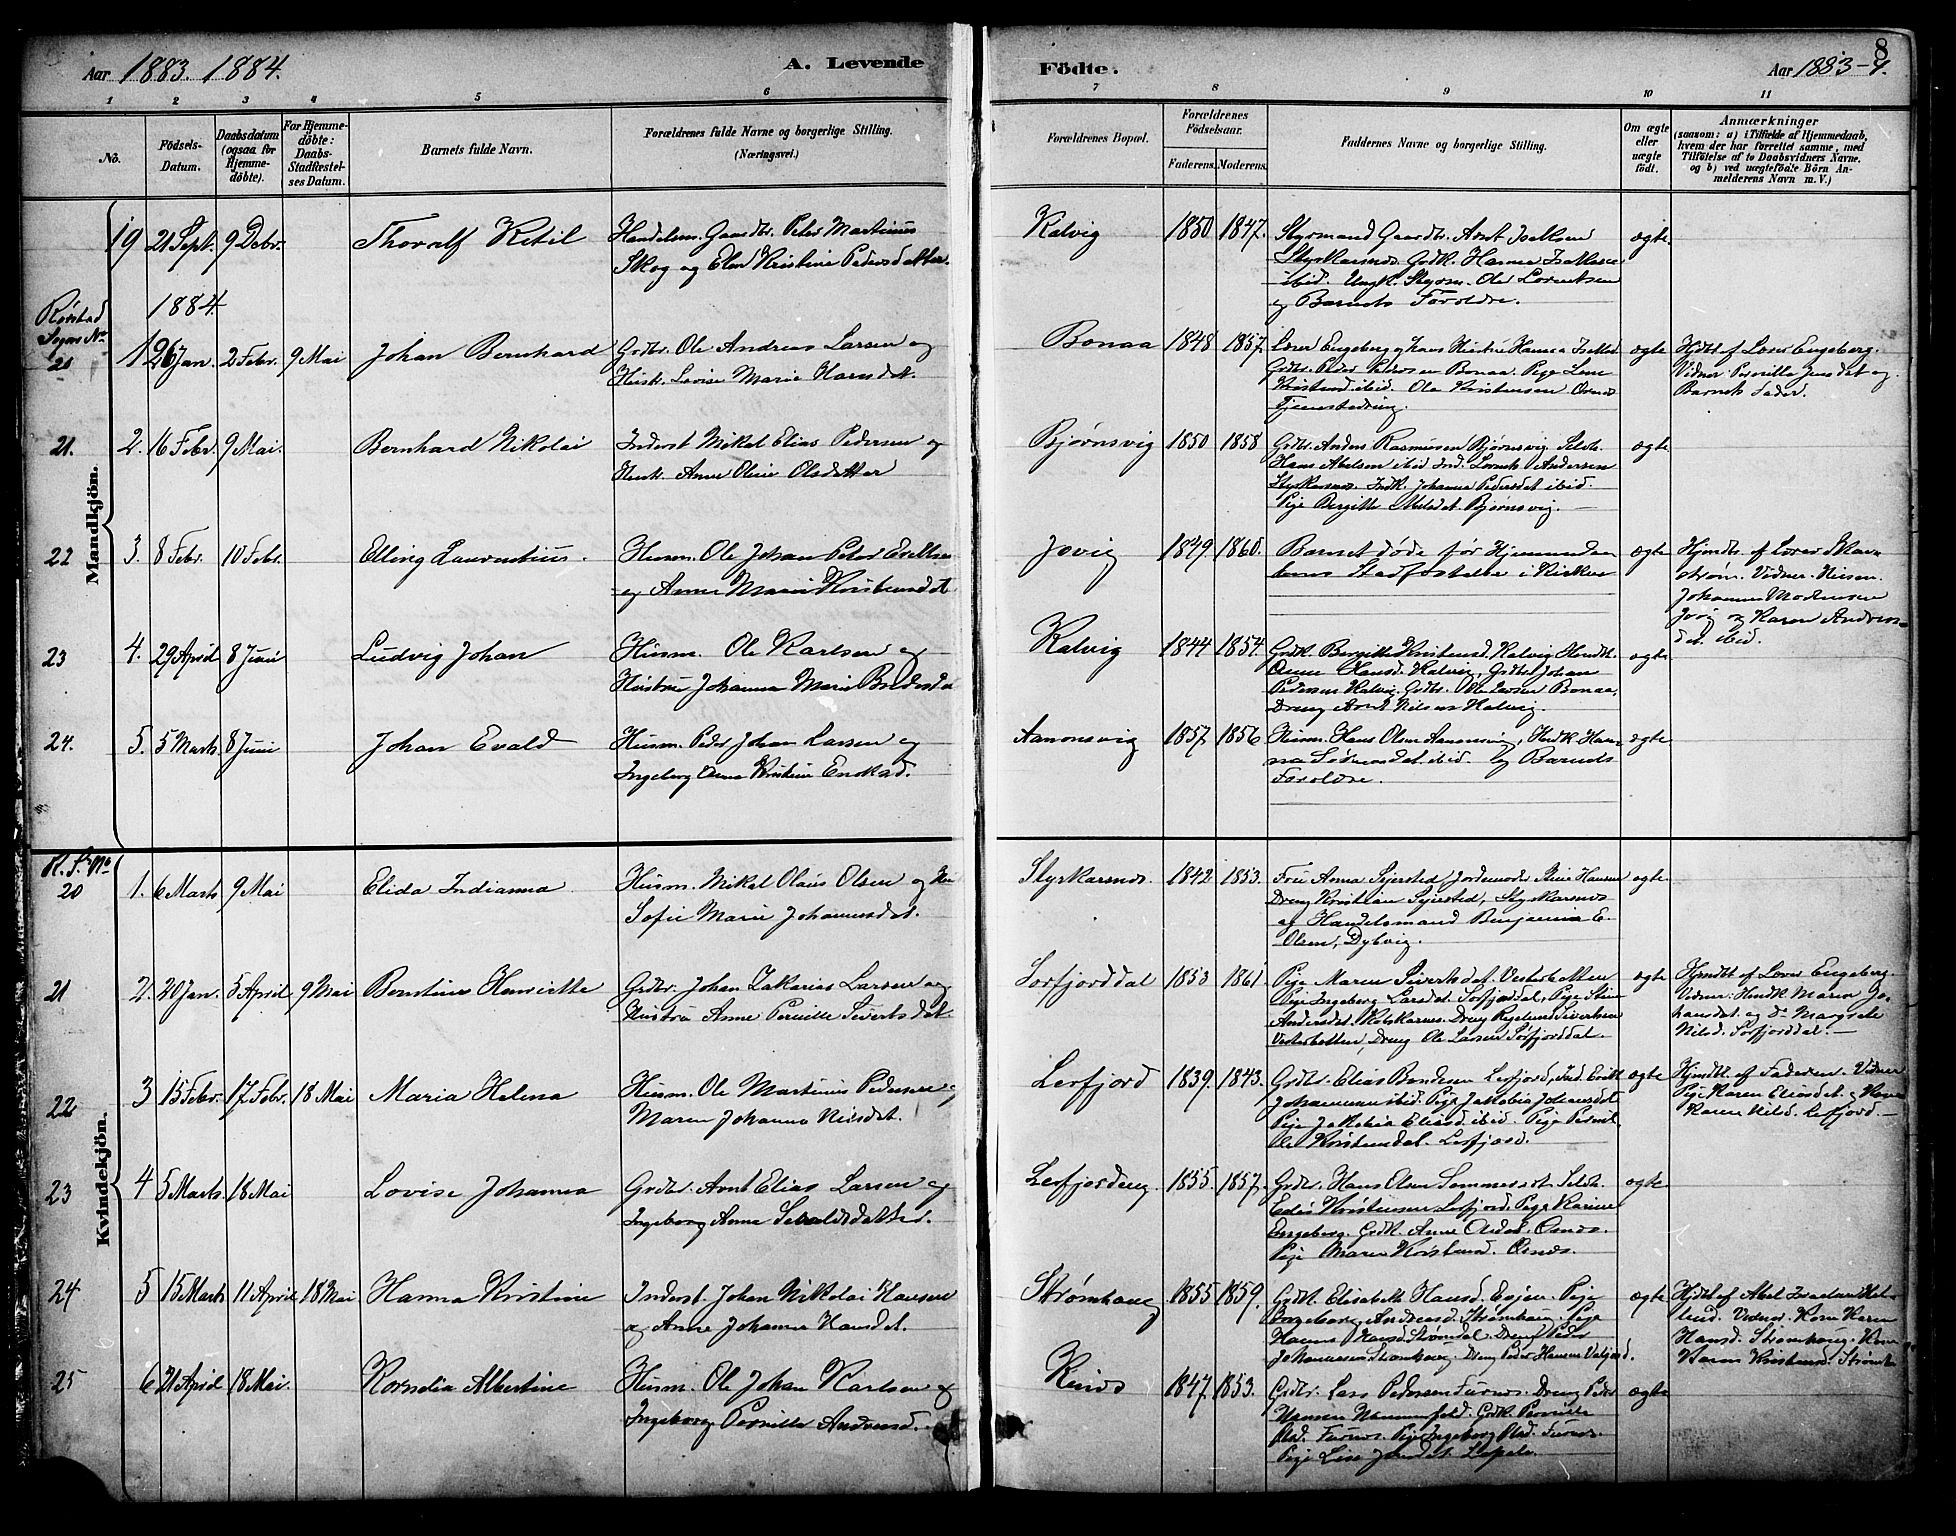 Aar 1883. 1884.
A. Levende
Födte.
Aar 1883-4.
8
1 2 3 4 5 6 7 8 9 10 11
No.
Födsels-Datum.
Daabsdatum (ogsaa for Hjemme-döbte).
For Hjemme-döbte: Daabs-Stadfæstel-ses Datum.
Barnets fulde Navn.
Forældrenes fulde Navne og borgerlige Stilling.
(Næringsvei.)
Forældrenes Bopæl.
Forældrenes Födselsaar.
Faderens. Moderens.
Faddernes Navne og borgerlige Stilling.
Om ægte eller uægte födt.
Anmærkninger
(saasom: a) i Tilfælde af Hjemmedaab,
hvem der har forrettet samme, med
Tilföielse af to Daabsvidners Navne,
og b) ved uægtefödte Börn An-
melderens Navn m. V.)
Mandkjön.
19 21 Sept. 9 Debr. Thoralf Ketil
Handelsm. Gaardbr. Peter Martinus
Skog og Elen Kristine Pedersdatter.
Kalvig 1850 1847.
Styrmand Gaardbr. Arnt Isaksen
Styrkarsnes. Grdk. Hanna Isaksen
ibid. Ungk. Styrm. Ole Lorentsen
og Barnets Forældre.
ægte.
Rørstad
Sogns No
1884.
20 1 26 Jan. 2 Febr. 9 Mai Johan Bernhard
Grdbr. Ole Andreas Larsen og
Hust. Lovise Marie Hansdat.
Bonaa 1848 1857.
Lærer Engeberg og hans Hustru Hanna Isaksd.
Grdbr. Peder Pedersen Bonaa. Pige Lene
Kristensd. ibid. Ole Kristensen
Tjenestedreng.
ægte
Hjdbt af Lærer Engeberg.
Vidner Pernille Jensdat og
Barnets Fader.
21. 2. 16 Febr. 9 Mai. Bernhard Nikolai
Inderst Mikal Elias Pedersen og
Hust. Anne Oline Olsdatter
Bjørnsvig 1850 1858
Grdbr. Anders Rasmussen Bjørnsvig. Selvb.
Hans Abelsen ibid. Ind. Lorents Andersen
Styrkarsnes. Indk. Johanna Pedersdat ibid.
Pige Bergitte Nilsdat. Bjørnsvig.
ægte
22 3. 8 Febr. 10 Febr. Elling Laurentius.
Husm. Ole Johan Peter Evaldsen
og Anne Maria Kristensdat
Jøvig 1849. 1860.
Barnet døde før Hjemmedaa-
bens Stadfæstelse i Kirken
ægte
Hjmdbt. af Lærer Skav-
strøm. Vidner. Husm.
Johannes Mortensen
Jøvig og Karen Anders-
dat. ibid.
23 4. 29 April 8 Juni Ludvig Johan
Husm. Ole Karlsen og
Hustru Johanna Marie Pedersdat
Kalvig 1844 1854.
Grdk Bergitte Kristensd. Kalvig. Husmk.
Anne Hansd. Kalvig, Grdbr. Johan
Pedersen Kalvig. Grdbr. Ole Larsen Bonaa,
Dreng Arnt Nilsen Kalvig.
ægte
24. 5. 5 Marts 8 Juni Johan Evald
Husm. Peder Johan Larsen og
Ingeborg Anna Kristine Enoksd.
Aanonsvig 1857. 1856
Husm. Hans Olsen Aanonsvig, Husk. Han-
na Sørensdat ibid. og Barnets
Forældre.
ægte
Kvindekjön.
R. S. No
20 1. 6 Marts 9 Mai Elida Indianna
Husm. Mikal Olaus Olsen og Hu
Sofie Marie Johannesdat.
Styrkarsnes. 1842 1853.
Fru Anna Sejersted Jordemoder Hansen
Dreng Kristian Sejersted, Styrkarsnes
og Handelsmand Benjamin E.
Olsen, Dybvig.
ægte.
21 2. 20 Jan. 5 April 9 Mai Berntine Henriette
Grdbr. Johan Zakarias Larsen og
Hustru Anne Pernille Sivertsdat.
Sørfjorddal 1853 1861
Pige Maren Sivertsdat. Vesterbotten
Pige Ingeborg Larsdat. Sørfjorddal, Pige Stine
Andersdat. Kalskarnes. Dreng Sivertsen
Vesterbotten, Dreng Ole Larsen Sørfjorddal.
ægte
Hjmdbt af Lærer Engeberg.
Vidner: Husmk Maren Jo-
hansdat. og do Margrete
Nilsd. Sørfjorddal.—
22 3 15 Febr. 17 Febr. 18 Mai Maria Helena
Husm. Ole Martinus Pedersen og
Maren Johanna Nilsdat.
Lerfjord 1839. 1843.
Grdbr. Elias Bendesen Lerfjord, Ind. Erik
Johannesen ibid. Pige Jakobia Johansdat
Pige Jakobia Eliasd. ibid. Pige Pernil-
le Kristensdat. Lerfjord.
ægte
Hjmdbt. af Faderen. Vidner
Pige Karen Eliasdat. og
Karen Nilsd. Lerfjord.—
23 4 5 Marts 18 Mai Lovise Johanna
Grdbr. Arnt Elias Larsen og
Ingeborg Anna Sevaldsdatter.
Lerfjordeng. 1855. 1857.
Grdbr. Hans Olsen Sommerset. Selvb.
Edis Kristensen Lerfjord. Pige Karine
Engeberg. Grdk. Anne Arnesd. Ornes.
Pige Maren Kristensd. Ornes.
ægte.
24 5 15 Marts 11 April 18 Mai Hanna Kristine
Inderst. Johan Nikolai Hansen
og Anne Johanna Hansdat.
Strømhaug 1855 1859.
Grdk. Elisabeth Hansd. Evjen. Pige
Ingeborg Andreasd. Strømhaug. Pige
Hanna Hansd. Strømdal. Dreng Peder
Johannesen Strømhaug. Dreng Peder Hansen
ægte
Hjdbt af Abel Israelsen Hel-
lend. Vidner. Kone Karen
Hansd. Strømhaug. Kone
Maren Kristensd. Strømh
25 6 21 April 18 Mai. Kornelia Albertine
Husm. Ole Johan Karlsen og
Ingeborg Pernille Andreasd.
Reinos 1847. 1853.
Grdbr. Lars Pedersen Furnes. Dreng Peder
Hansen Hammerfeld. Grdk. Pernille
Olsd. Furnes. Pige Ingeborg Olsd. Furnes.
Pige Lise Jensdat
ægte